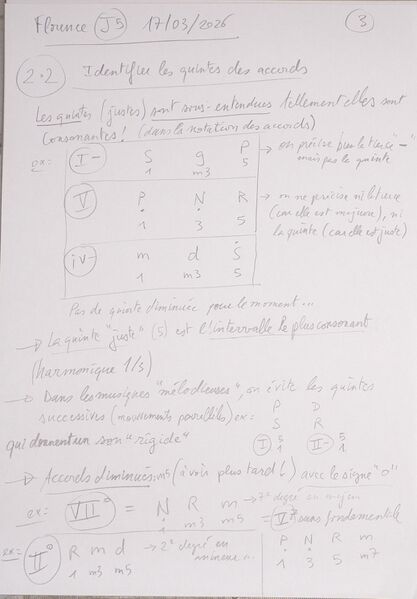 Florence J5 17/03/2026 3
2.2 Identifier les quintes des accords
Les quintes (justes) sont sous-entendues tellement elles sont
consonantes ! (dans la notation des accords)
ex: I- S g P → on précise bien la tierce "-"
1 m3 5 mais pas la quinte
V P N R → on ne précise ni la tierce
1 3 5 (car elle est majeure), ni
la quinte (car elle est juste)
iv- m d S
1 m3 5
Pas de quinte diminuée pour le moment...
→ La quinte "juste" (5) est l'intervalle le plus consonant
(harmonique 1/3)
→ Dans les musiques "mélodieuses", on évite les quintes
successives (mouvements parallèles) ex: P D
S R
qui donnent un son "rigide" I 5 1 II- 5 1
→ Accords diminués: m5 (à voir plus tard !) avec le signe "o"
ex: VII° = N R m → 7° degré en majeur
1 m3 m5 = V7 sans fondamentale
ex: II° R m d → 2° degré en P N R m
1 m3 m5 mineur 1 3 5 m7